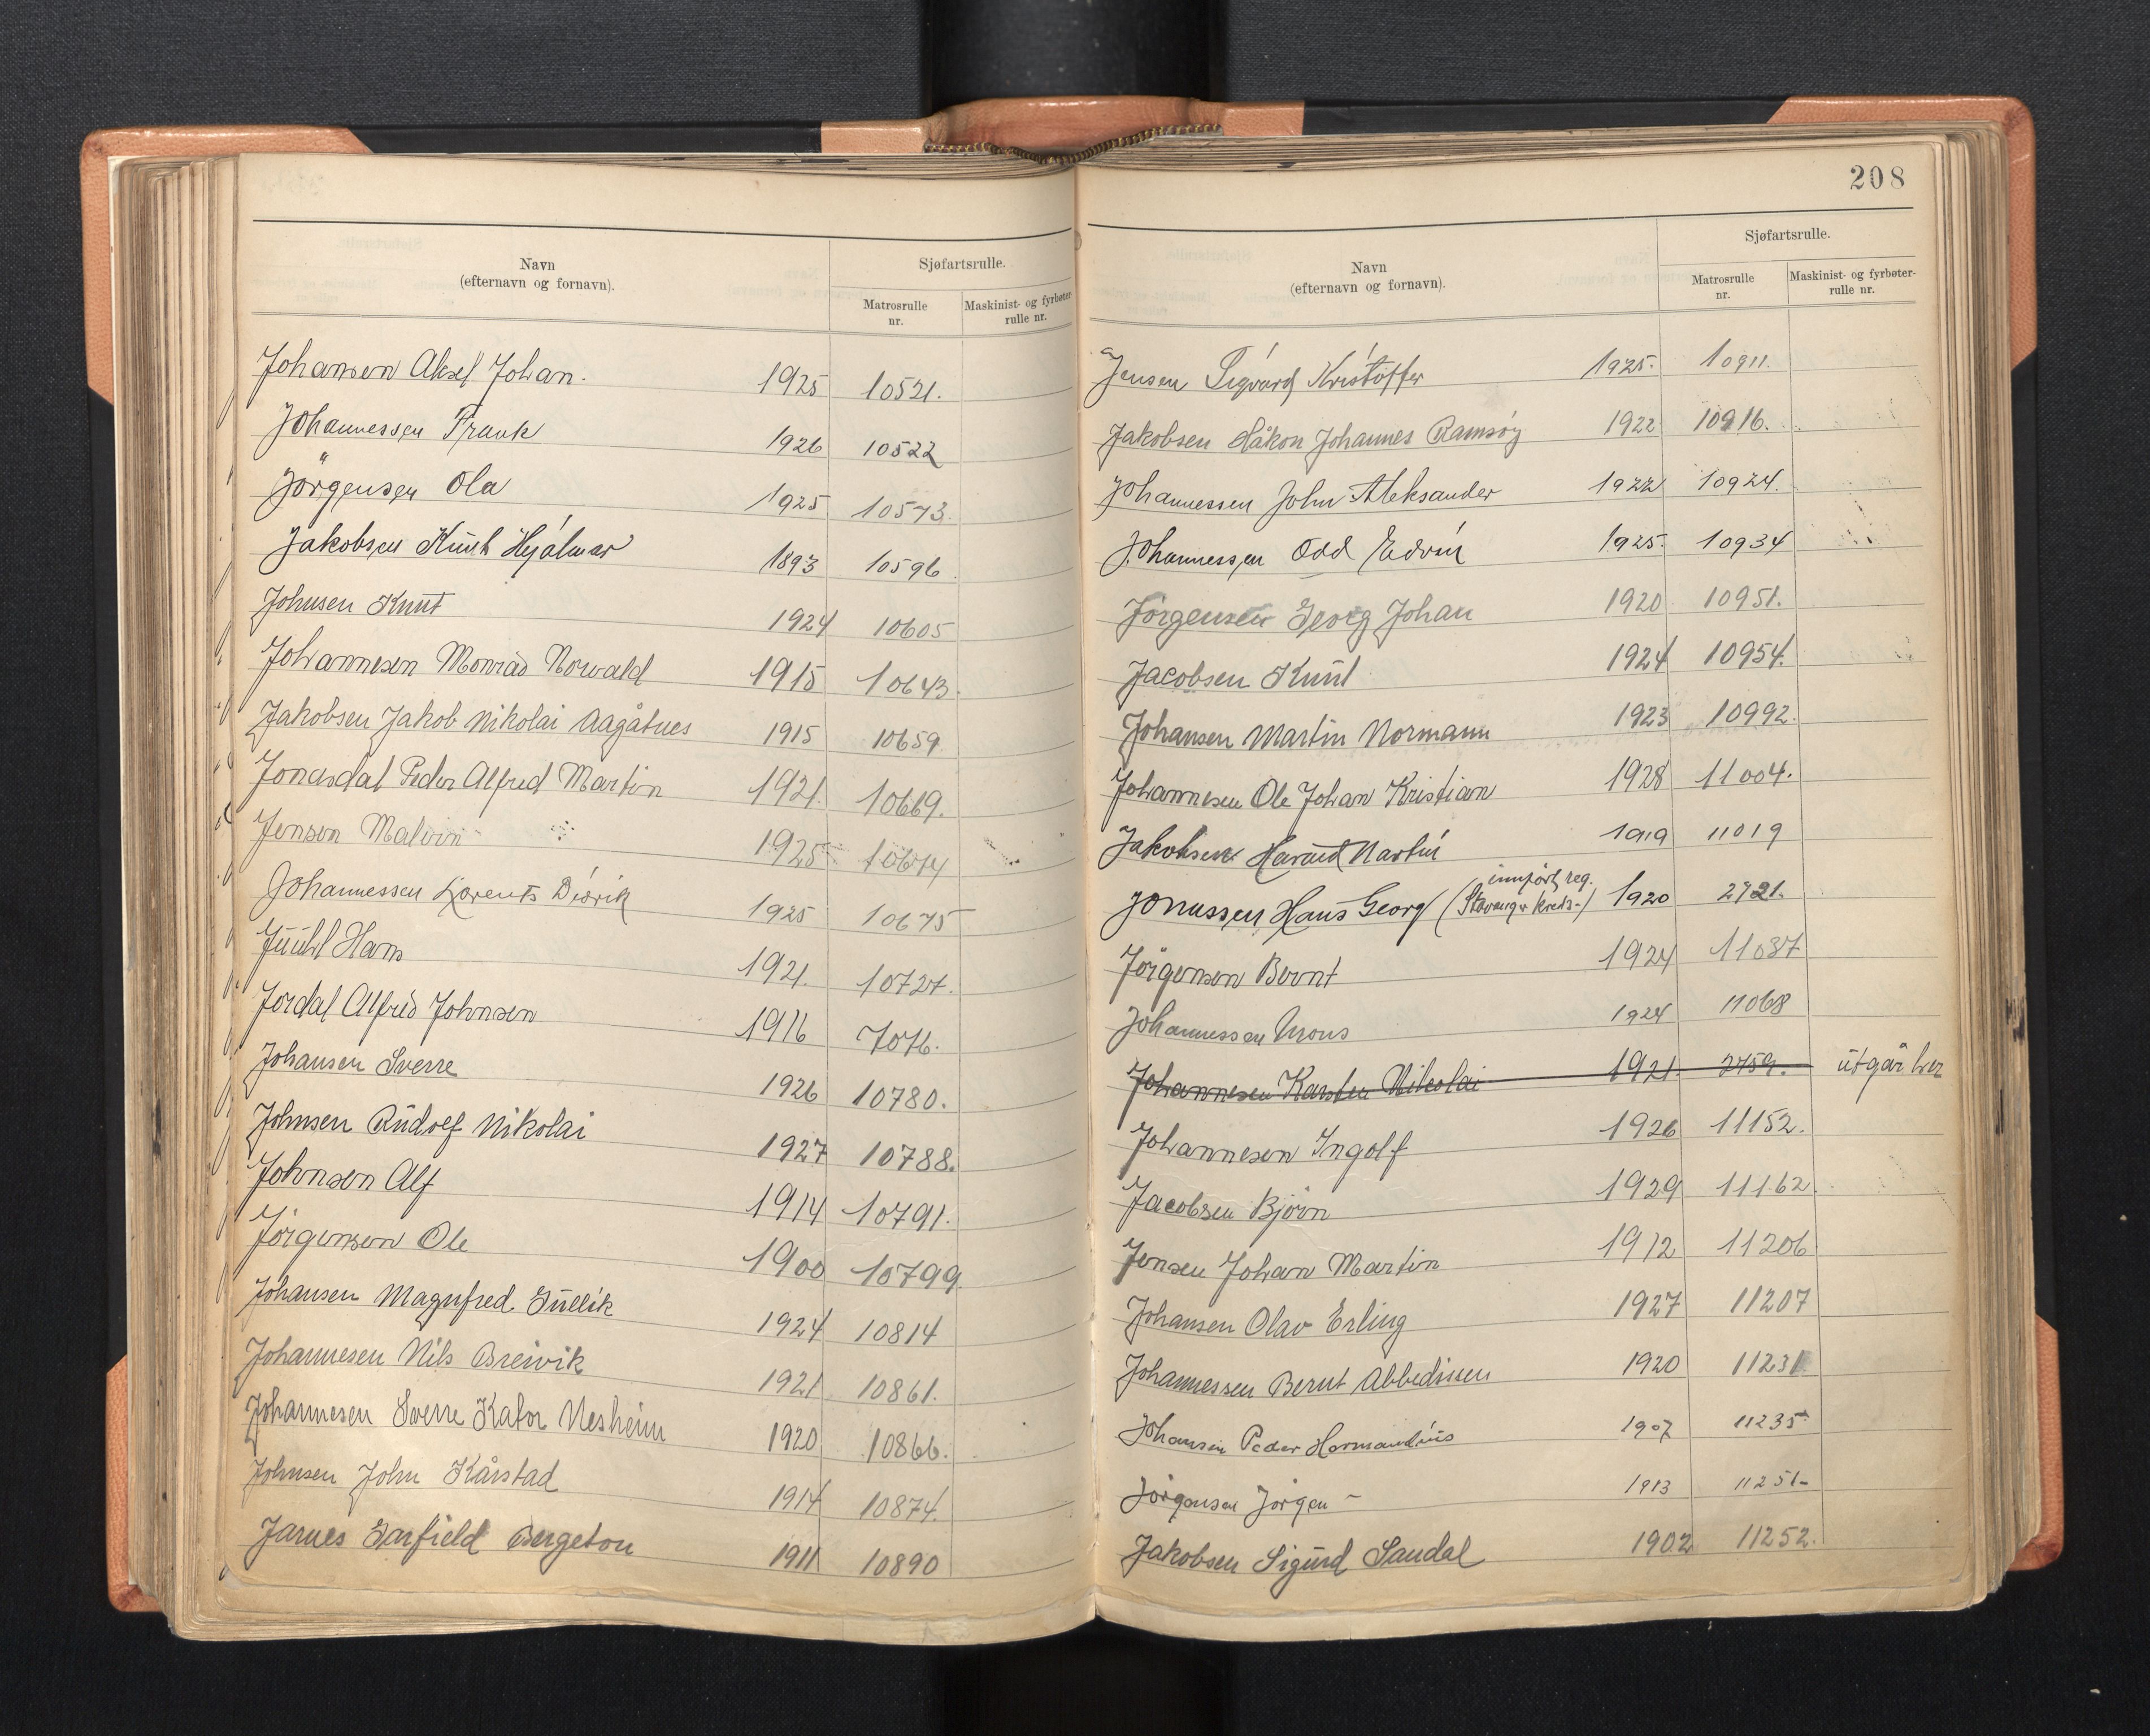 Navn
(efternavn og fornavn).
Sjøfartsrulle.
Matrosrulle
nr.
Maskinist- og fyrbøter-
rulle nr.
Johansen Aksel Johan. 1925 10521.
Johannessen Frank 1926 10522
Jörgensen Ola 1925 10573.
Jakobsen Knut Hjálmar 1893 10596.
Johnsen Knut 1924 10605
Johannesen Monrad Norvald 1915 10643.
Jakobsen Jakob Nikolai Aagåtnes 1915 10659
Jonasdal Peder Alfred Martin 1921. 10669.
Jensen Malvin 1925 10674
Johannessen Lorents Didrik 1925 10675
Juuhl Hans 1921. 10727.
Jordal Alfred Johnsen 1916 7076.
Johansen Sverre 1926 10780.
Johnsen Rudolf Nikolai 1927 10788.
Johnsen Alf 1914 10791.
Jörgensen Ole 1900 10799.
Johansen Magnfred Gullik 1924 10814
Johannesen Nils Breivik 1921 10861.
Johannesen Sverre Kator Nesheim 1920 10866.
Johnsen John Kårstad 1914 10874.
Jarnes Garfield Bergeton 1911 10890
208
Navn
(efternavn og fornavn).
Sjøfartsrulle.
Matrosrulle
nr.
Maskinist- og fyrbøter-
rulle nr.
Jensen Sigvard Kristoffer 1925. 10911.
Jakobsen Håkon Johannes Ramsøy 1922 10916.
Johannessen John Aleksander 1922 10924.
Johannessen Odd Edvin 1925. 10934
Jörgensen Georg Johan 1920 10951.
Jacobsen Knut 1924 10954.
Johansen Martin Normann 1923 10992.
Johannesen Ole Johan Kristian 1928 11004.
Jakobsen Harald Martin 1919 11019
innfört reg.
Jonassen Hans Georg (Stavanger krets.) 1920 2721.
Jörgensen Bernt 1924 11037
Johannessen Mons 1924 11068
Johannesen Karsten Nikolai 1921 2759. utgår her
Johannesen Ingolf 1926 11152.
Jacobsen Björn 1929 11162
Jensen Johan Martin 1912 11206
Johansen Olav Erling 1927 11207
Johannessen Bernt Abbedissen 1920 11231
Johansen Peder Hermandius 1907 11235
Jörgensen Jörgen - 1913 11251-
Jakobsen Sigurd Sandal 1902 11252.